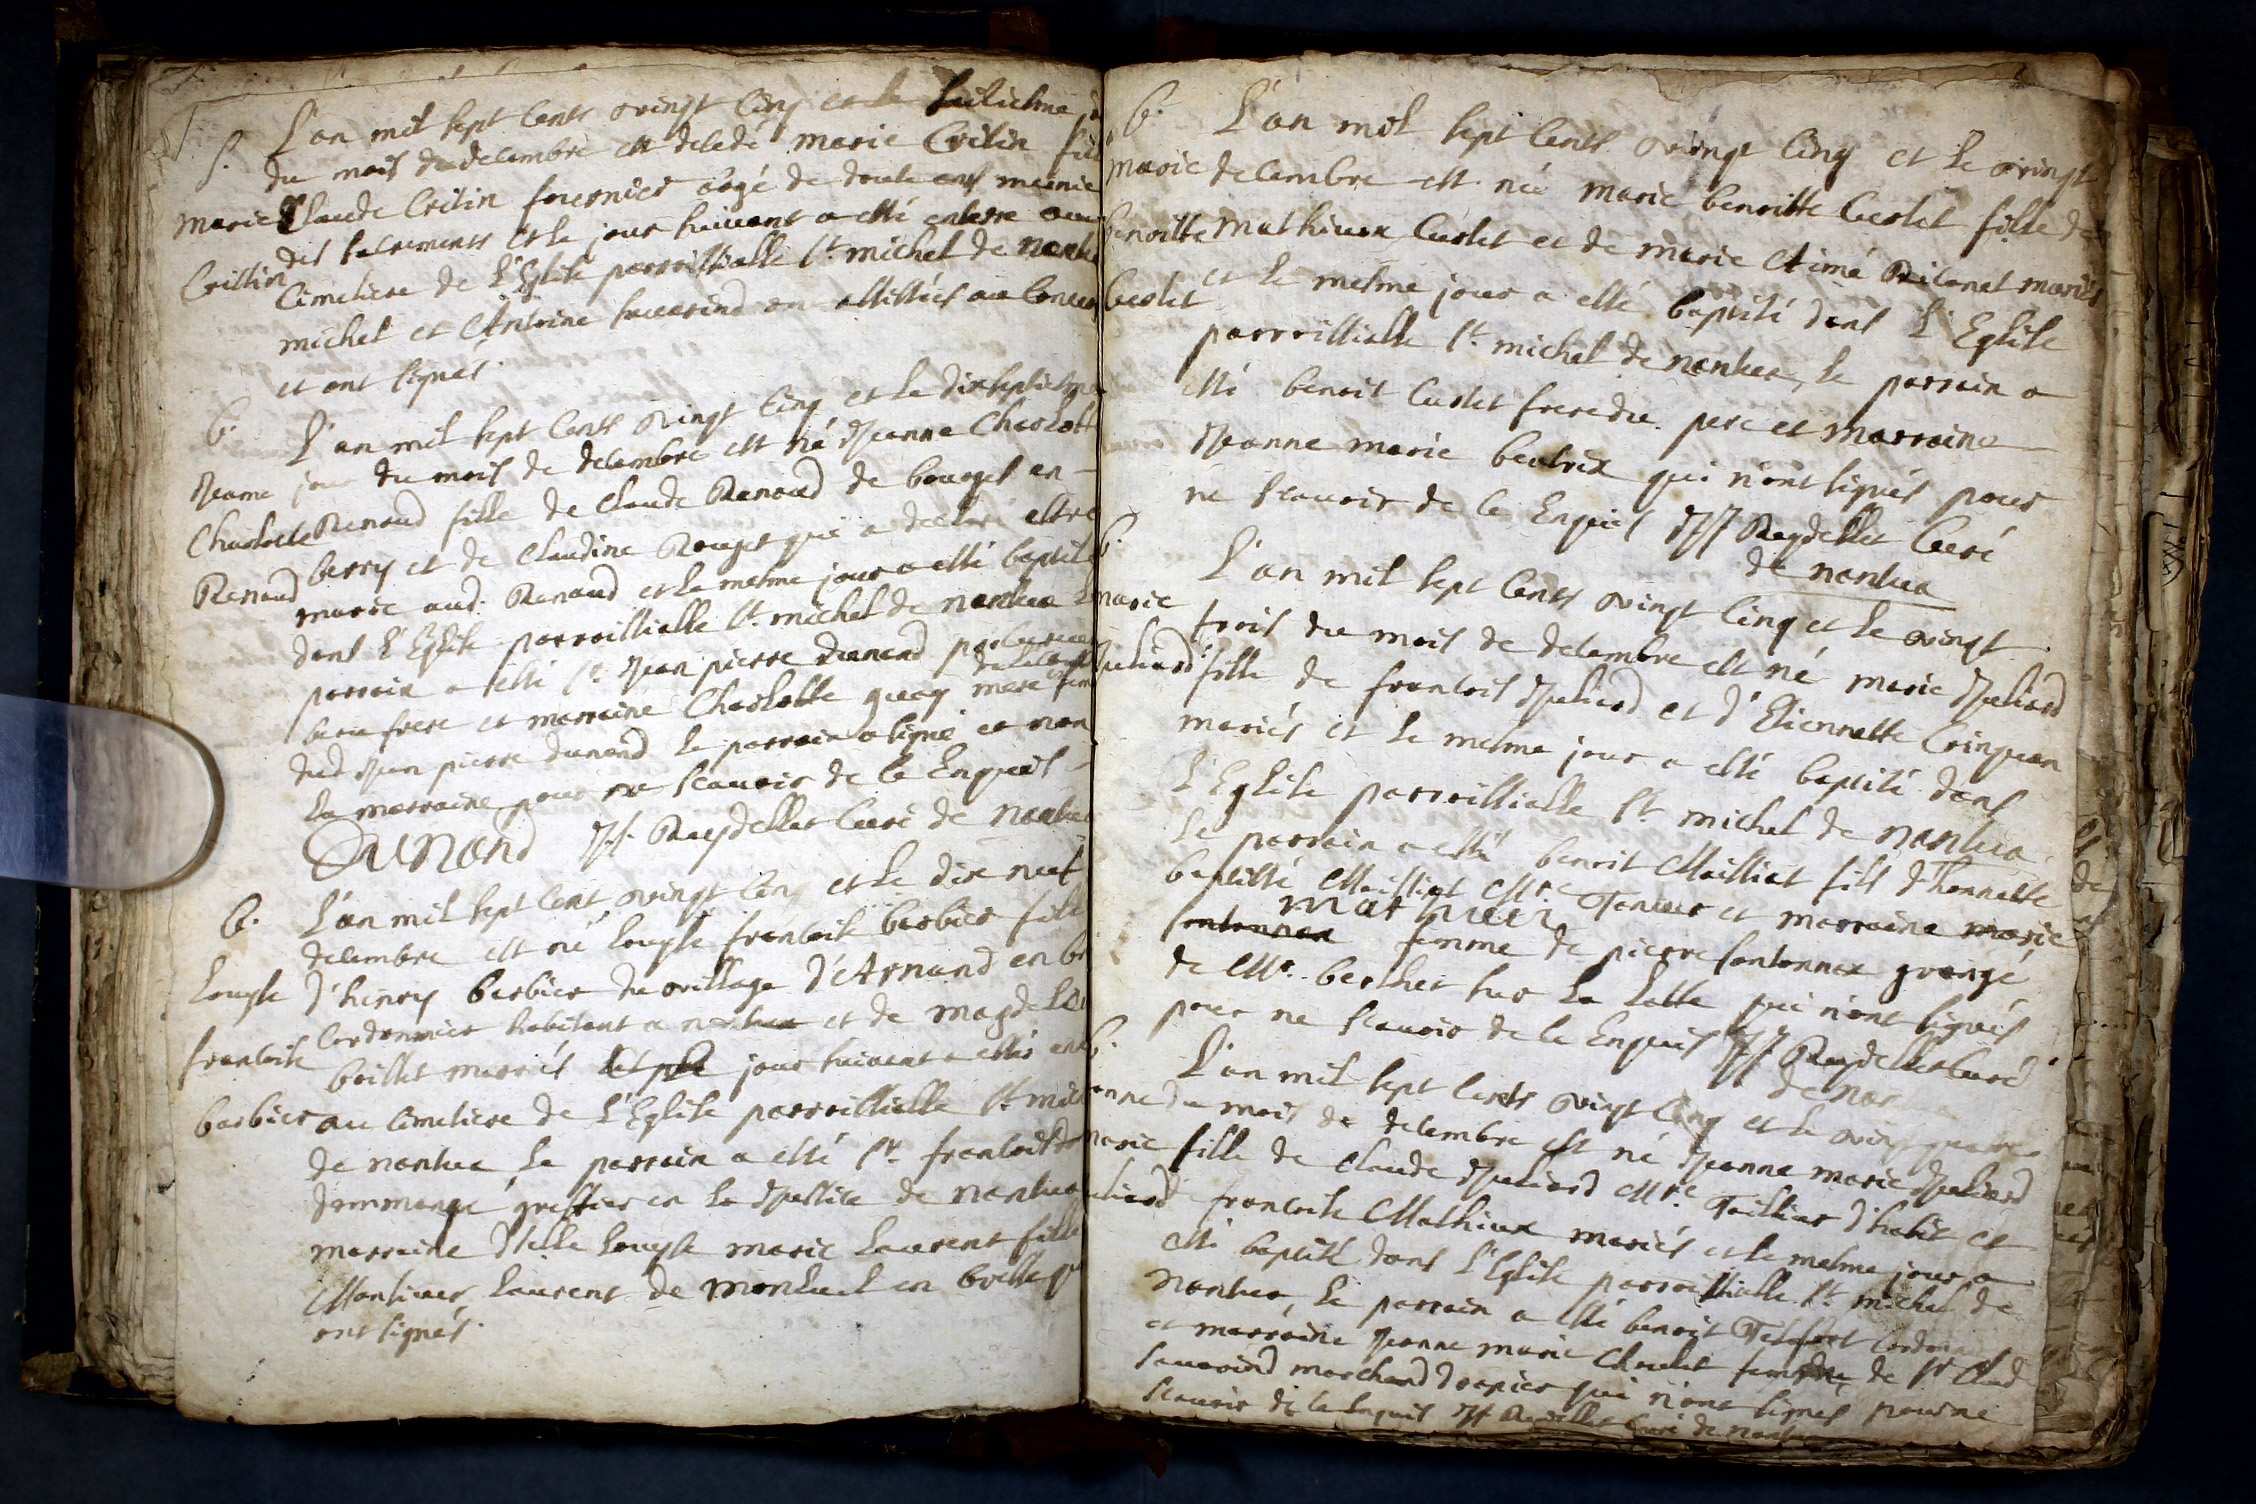 S. L'an mil sept cents vingt cinq et le huitiesme
du mois de decembre est decedé marie Critin
marie Claude Critin fournier aagé de douze ans meunie
des sacrements et le jour suivant a esté enterre au
Crittin cimetiere de L'Eglise parroissialle St. michel de nantua
michel et Antoine sauarind on assistés au
et ont signés.
b. L'an mil sept cents vingt cinq et le dixseptiesme
Jeanne jour du mois de decembre est né Jeanne Charlotte
Charlotte Renaud fille de Claude Renaud de bourges en
Renaud berry et de Claudine Rouget qui a declaré estre
marie aud. Renaud et le mesme jour a esté baptisé
dans L'Eglise parroissialle St. michel de nantua
parrain a esté Sr. Jean pierre dunand
beau frere et marraine Charlotte guay mere
dud Jean pierre dunand le parrain a signé et non
la marraine pour ne scauoir de ce Enquis
Dunand JJ. Reydellet Curé de nantua
b. L'an mil sept cent vingt cinq et le dix neuf
decembre est né Louyse francoise barbier fille
Louyse d'henry barbier du village d'Arnand en
francoise Cordonnier habitant a nantua et de magdel
brillet mariés jour suivant a estés
barbier au cimetiere de L'Eglise parroissialle St. mic
de nantua Le parrain a esté Sr. francois
dommange greffier en la Justice de nantua
marraine dlle Louyse marie Laurent fille
Laurent de monluel en bresse
ont signés.
b. L'an mil sept cents vingt cinq et le vingt
marie decembre est né marie benoitte Curlet fille de
benoitte mathieux Curlet et de marie Aimé mariés
Curlet et le mesme jour a esté baptisé dans L'Eglise
parroissialle St. michel de nantua, le parrain a
esté benoit Curlet frere du pere et marraine
Jeanne marie beatrix qui n'ont signés pour
ne scauoir de ce Enquis JJ Reydellet Curé
de nantua
b. L'an mil sept cents vingt cinq et le vingt
marie trois du mois de decembre est né marie Juliard
Juliard fille de francois Juliard et d'Etiennette
mariés et le mesme jour a esté baptisé dans
L'Eglise parroissialle St. michel de nantua
le parrain a esté benoit Mailliat fils d'honneste
baptiste Mailliat Mre. Tanneur et marraine marie
femme de pierre fontannex grangé
de Mr. berthet sur la Latte qui n'ont signés
pour ne scauoir de ce Enquis JJ. Reydellet Curé
de nantua
b. L'an mil sept cents vingt cinq et le vingt quatre
Jeanne du mois de decembre est né Jeanne marie Juliard
marie fille de Claude Juliard Mre. Taillieur d'habit et
Juliard francoise Mathieux mariés et le mesme jour a
esté baptisé dans L'Eglise parroissialle St. michel de
nantua, le parrain a esté benoit Cordonnier
et marraine Jeanne marie femme de Sr Claud
sauarind marchand drapier qui n'ont signés pour ne
scauoir de ce Enquis JJ Reydellet Curé de nantua